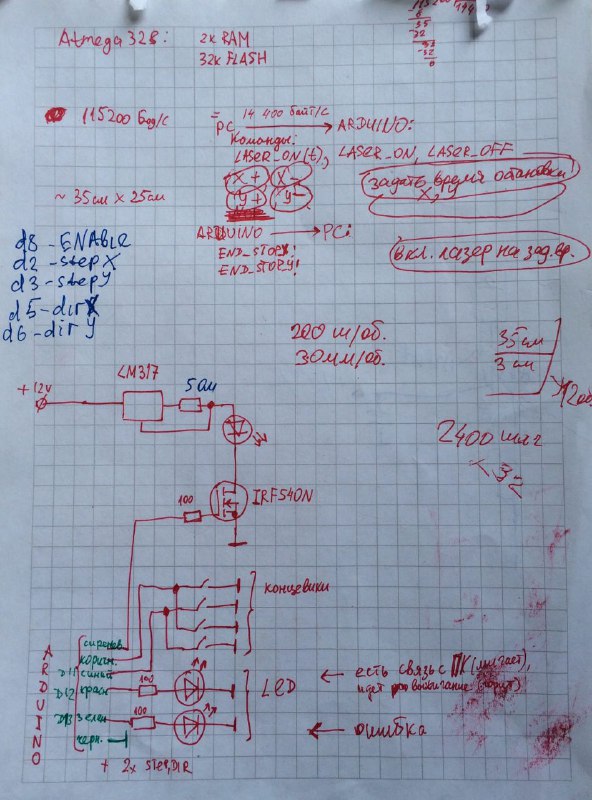 Atmega 328:
2k RAM
32k FLASH
115200
35
32
0
115200 Бод/с
= PC 14 400 байт/с ARDUINO:
Команды:
LASER_ON(t), LASER_ON, LASER_OFF
X+ X-
Y+ Y-
задать время остановки
X, Y
~ 35см x 25см
ARDUINO PC:
END_STOPX!
END_STOPY!
вкл. лазер на зад. вр.
d8 - ENABLE
d2 - stepX
d3 - stepY
d5 - dirX
d6 - dirY
200 ш/об.
30мм/об.
35 см
3 см
12 об.
2400 шаг
x 32
LM317
+ 12V
5 Ом
IRF540N
100
концевики
ARDUINO
сиренев.
коричн.
D11 синий
D12 красн
100
D13 зелен
100
черн.
LED
есть связь с ПК (мигает),
идет выжигание (горит)
ошибка
+ 2x Step, DIR